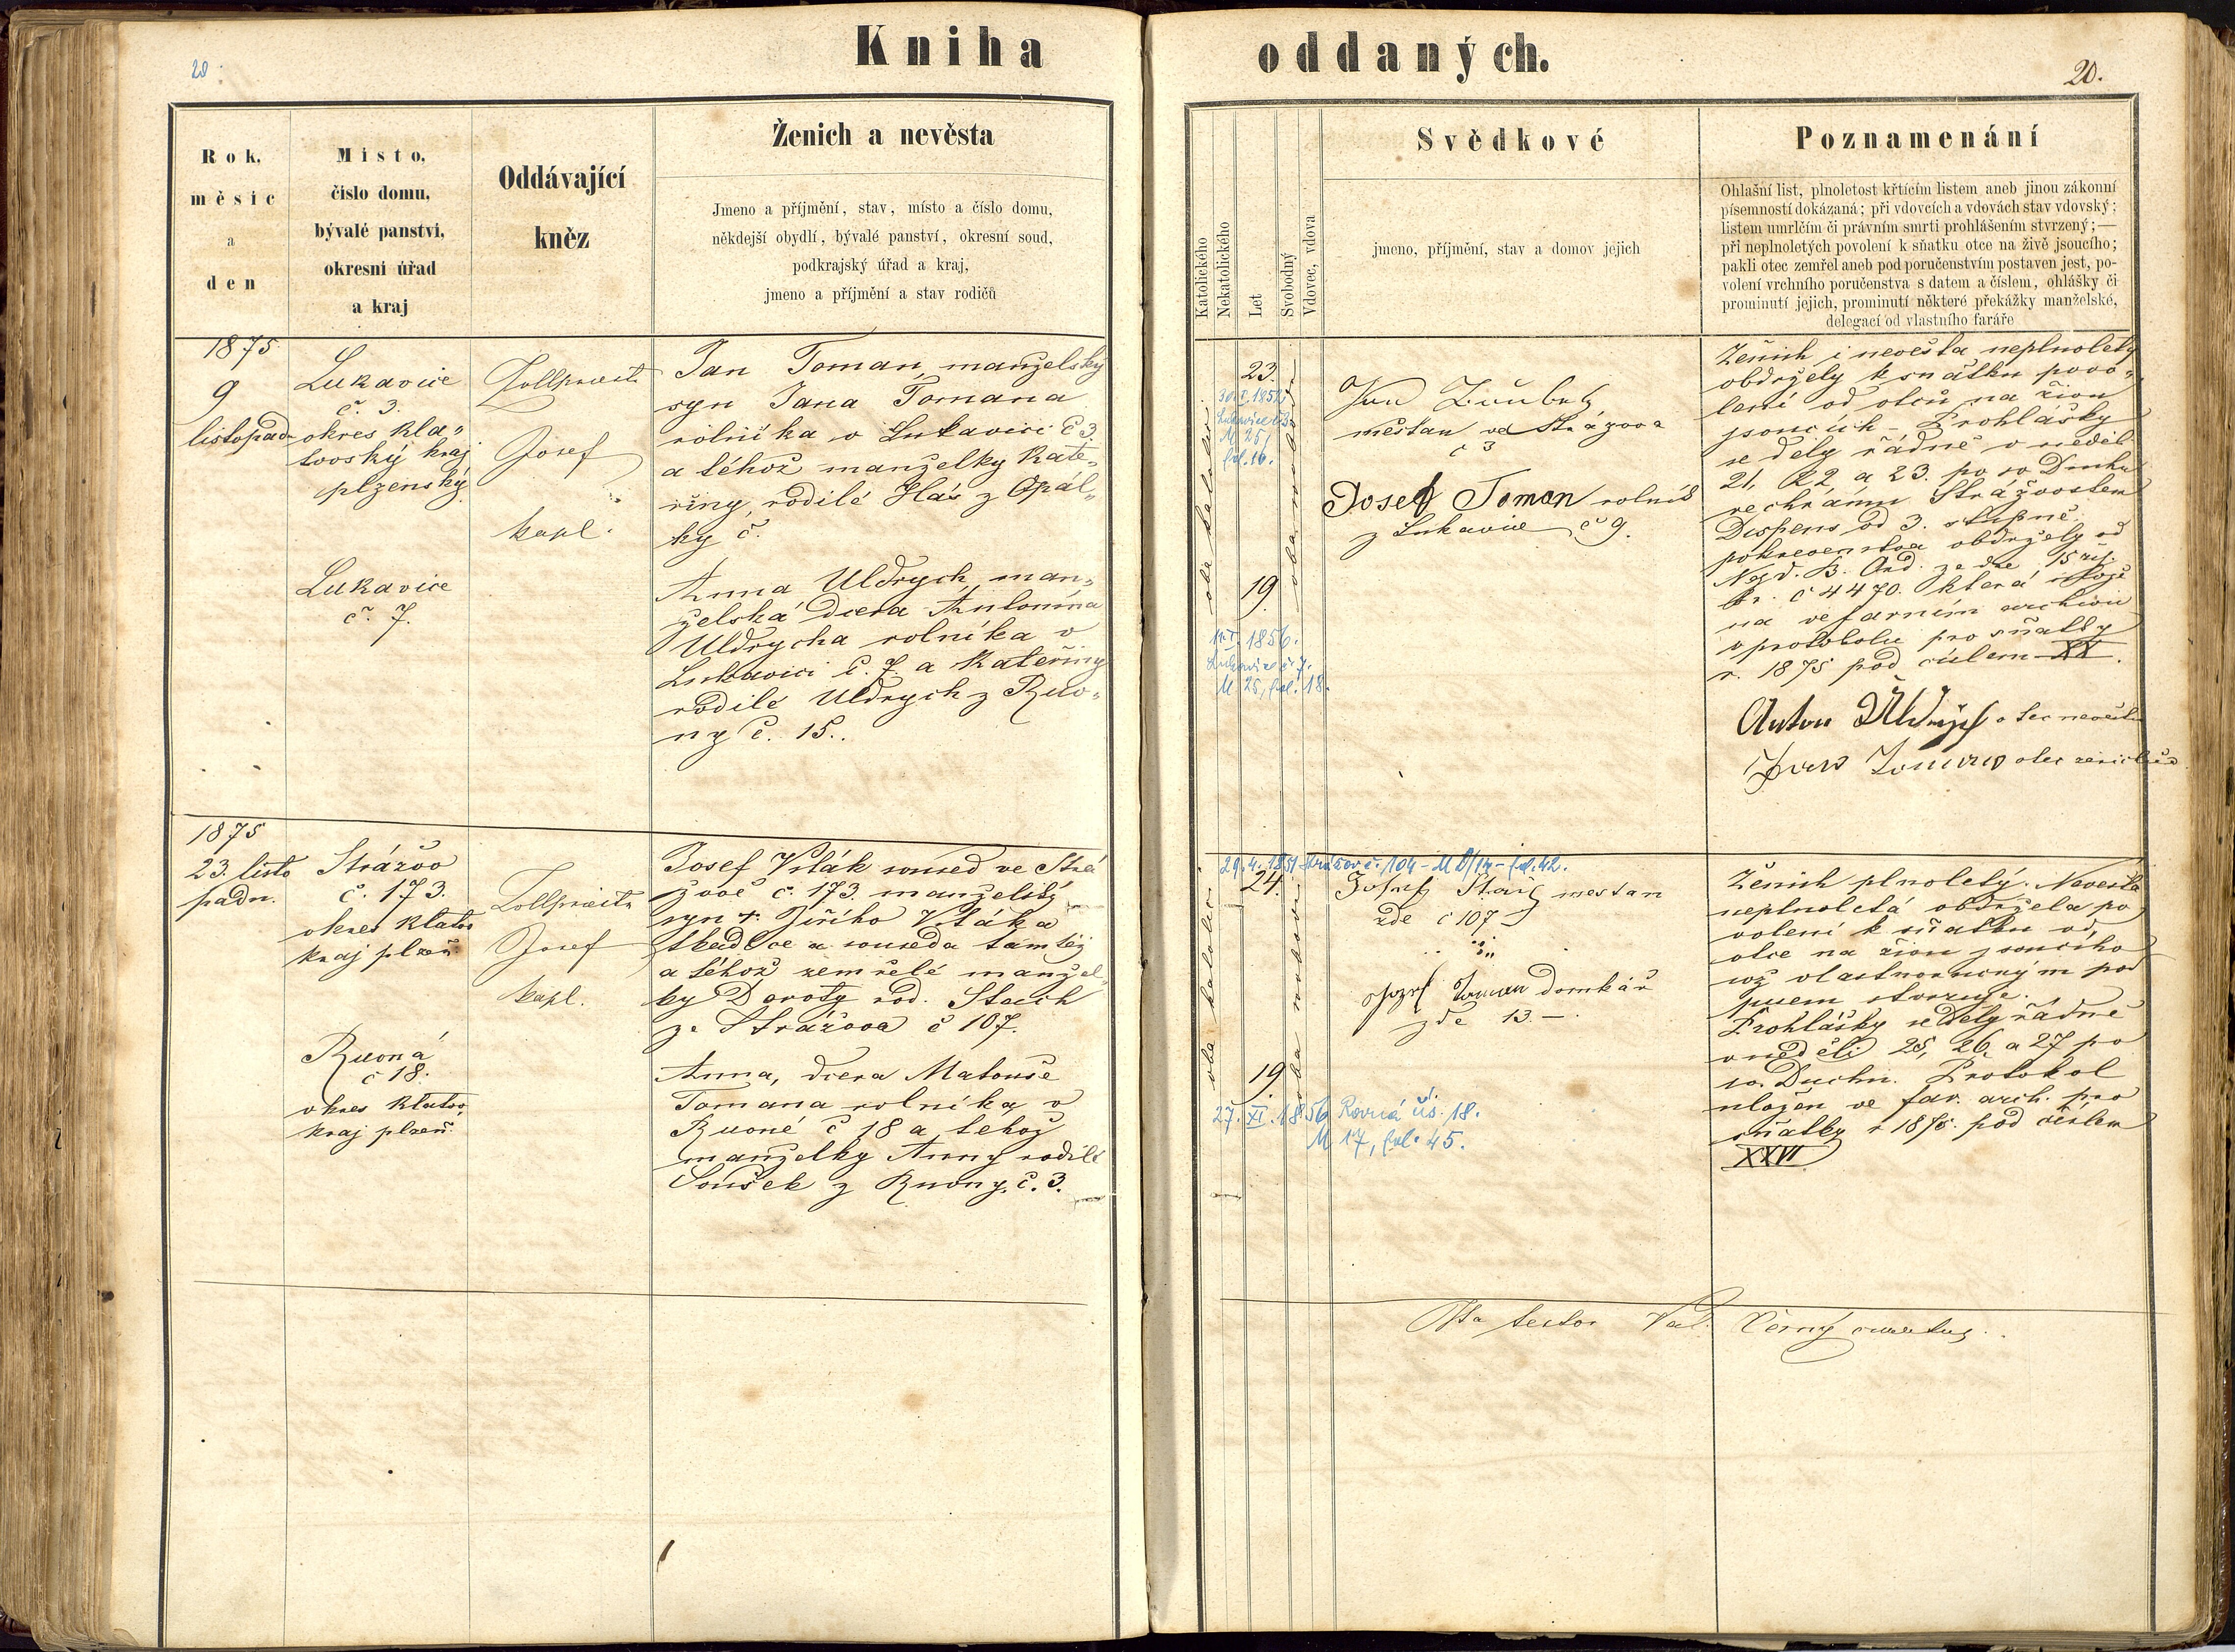 Kniha
oddaných.
20
20.
Rok,
měsíc
a
den
Místo,
číslo domu,
bývalé panství,
okresní úřad
a kraj
Oddávající
kněz
Ženich a nevěsta
Jmeno a příjmění, stav, místo a číslo domu,
někdejší obydlí, bývalé panství, okresní soud,
podkrajský úřad a kraj,
jmeno a příjmění a stav rodičů
Katolického
Nekatolického
Let
Svobodný
Vdovec, vdova
Svědkové
jmeno, příjmění, stav a domov jejich
Poznamenání
Ohlašní list, plnoletost křtícím listem aneb jinou zákonní
písemností dokázaná; při vdovcích a vdovách stav vdovský;
listem umrlčím či právním smrti prohlášením stvrzený;—
při neplnoletých povolení k sňatku otce na živě jsoucího;
pakli otec zemřel aneb pod poručenstvím postaven jest, po-
volení vrchního poručenstva s datem a číslem, ohlášky či
prominutí jejich, prominutí některé překážky manželské,
delegací od vlastního faráře
1875
9
listopadu
Lukavice
č. 3.
okres kla„
tovský kraj
plzenský
Lukavice
č. 7.
Josef
kapl.
Jan Toman, manželský
syn Jana Tomana
rolníka v Lukavici č 3.
a téhož manželky Kate„
řiny, rodilé Hás z Opál„
ky č.
Anna Uldrych, man„
želská dcera Antonína
Uldrycha rolníka v
Lukavici č. 7. a Kateřiny
rodilé Uldrych z Ruo„
ny č. 15..
oba katolíci
23.
Lukavice č. 3.
M 25,
fol. 16.
19.
1856.
Lukavice č 7.
M 25, fol. 18.
Jan
měštan ve Strážova
č 3
Josef Toman rolník
z Lukavice č 9.
Ženich i nevěsta neplnoletý
obdrželý k sňatku povo„
lení od otců na živu
jsoucích – Prohlášky
se dely řádně v neděl
21, 22 a 23. po sv Duchu
ve chrámu Strážovském
Dispens od 3. stupně
pokrevenstva obdržely od
Nejd. B. Ord. ze dne 15 říj.
br. č 4470. která
na ve farním archivu
v protokolu pro sňatky
r. 1875 pod číslem XX.
Anton Uldrych otec nevěsty
Jan Toman otec ženicha
1875
23. listo
padu.
Strážov
č. 173.
okres Klatov
kraj plzeň
Ruoná
č 18.
okres Klatov,
kraj plzeň.
Josef
kapl.
Josef Vlták soused ve Strá
žově č. 173. manželský
syn † Jiřího Vltáka
tkadlce a souseda tamtéž
a téhož zemřelé manžel„
ky Doroty rod. Stach
ze Strážova č 107.
Anna, dcera Matouše
Tomana rolníka v
Ruoné č 18 a tehož
manželky Anny rodilé
Soušek z Ruony, č. 3.
oba katolíci
29.4.1851 Strážov č. 104 – fol. 42.
24.
19.
27. XI. 1856 Rovná čís. 18.
M 17, fol. 45.
Josef mestan
zde č 107
Josef Toman domkář
zde 13.–
Ženich plnoletý. Nevěsta
neplnoletá obdržela po
volení k sňatku od
otce na živu jsoucího
což vlastnoručným pod
pisem stvrzuje.
Prohlášky se dely řádně
v neděli 25, 26. a 27 po
sv. Duchu. Protokol
uložen ve far. arch. pro
sňatky r 1875. pod číslem
XXVI
Černý